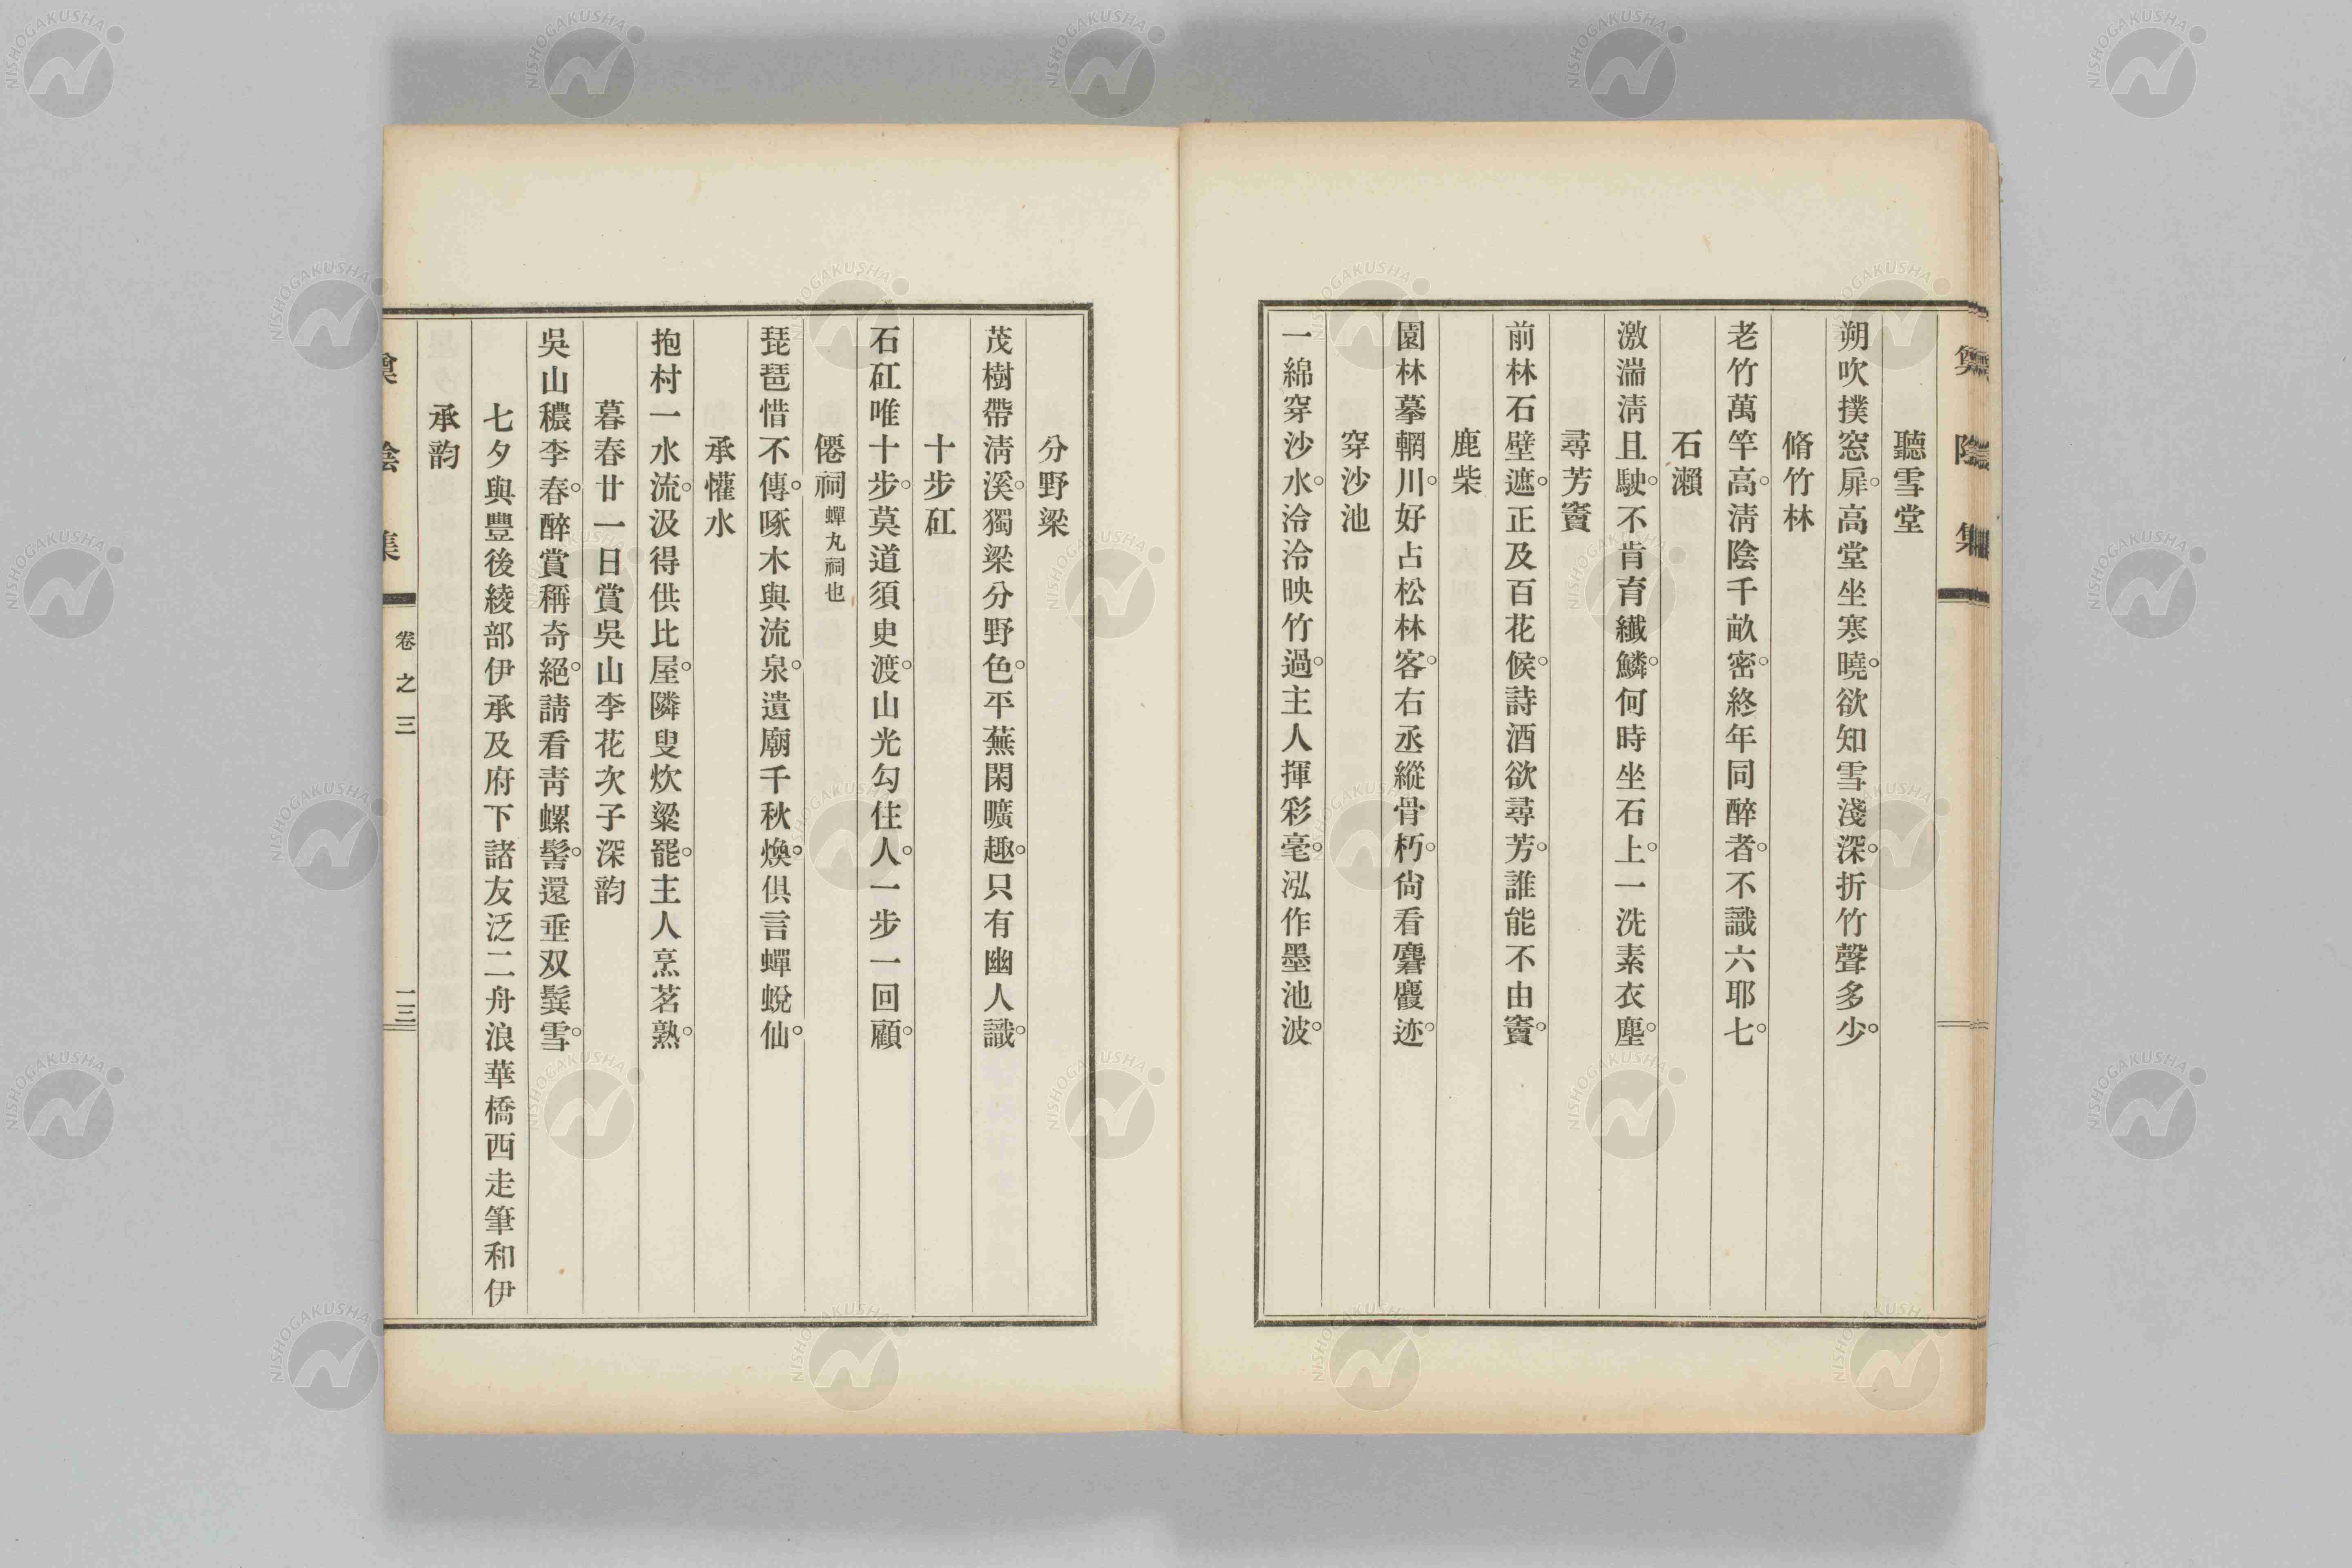 聽雪堂
朔吹撲窓扉。高堂坐寒曉。欲知雪淺深。折竹聲多少。
脩竹林
老竹萬竿高。淸陰千畝密。終年同醉者。不識六耶七。
石瀨
激湍淸且駛。不肯育纖鱗。何時坐石上。一洗素衣塵。
尋芳竇
前林石壁遮。正及百花候。詩酒欲尋芳。誰能不由竇。
鹿柴
園林摹輞川。好占松林客。右丞縱骨朽。尙看麏麚迹。
穿沙池
一綿穿沙水。泠泠映竹過。主人揮彩毫。泓作墨池波。
分野梁
茂樹帶淸溪。獨梁分野色。平蕪閑曠趣。只有幽人識。
十步矼
石矼唯十步。莫道須臾渡。山光勾住人。一步一回顧。
僊祠 蟬丸祠也
琵琶惜不傳。啄木與流泉。遺廟千秋煥。俱言蟬蛻仙。
承懽水
抱村一水流。汲得供比屋。隣叟炊粱罷。主人烹茗熟。
暮春廿一日賞吳山李花次子深韵
吳山穠李春。醉賞稱奇絕。請看靑螺髻。還垂双鬂雪。
七夕與豐後綾部伊承及府下諸友泛二舟浪華橋西走筆和伊
承韵
卷之三
一三
NISHOGAKUSHA